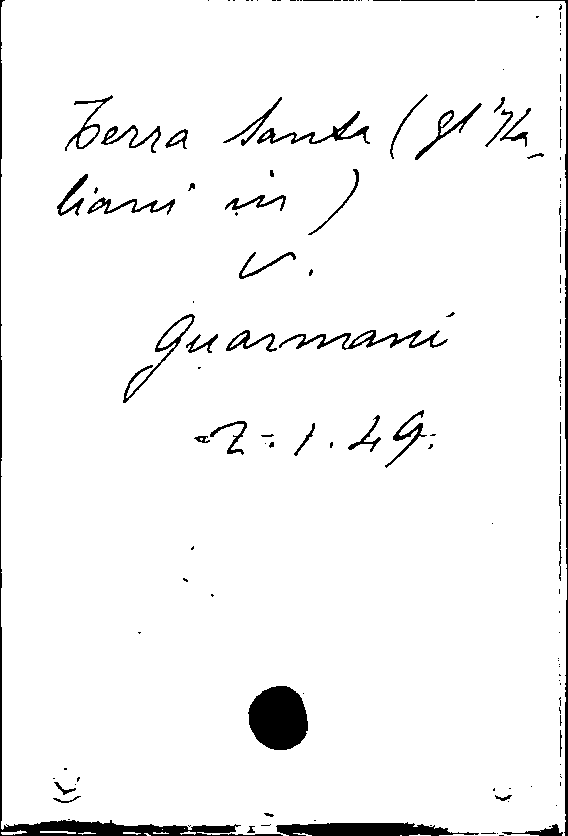 Terra Santa (gl'Ita_
liani in)
V.
Guarmani
-Z-.1.49.